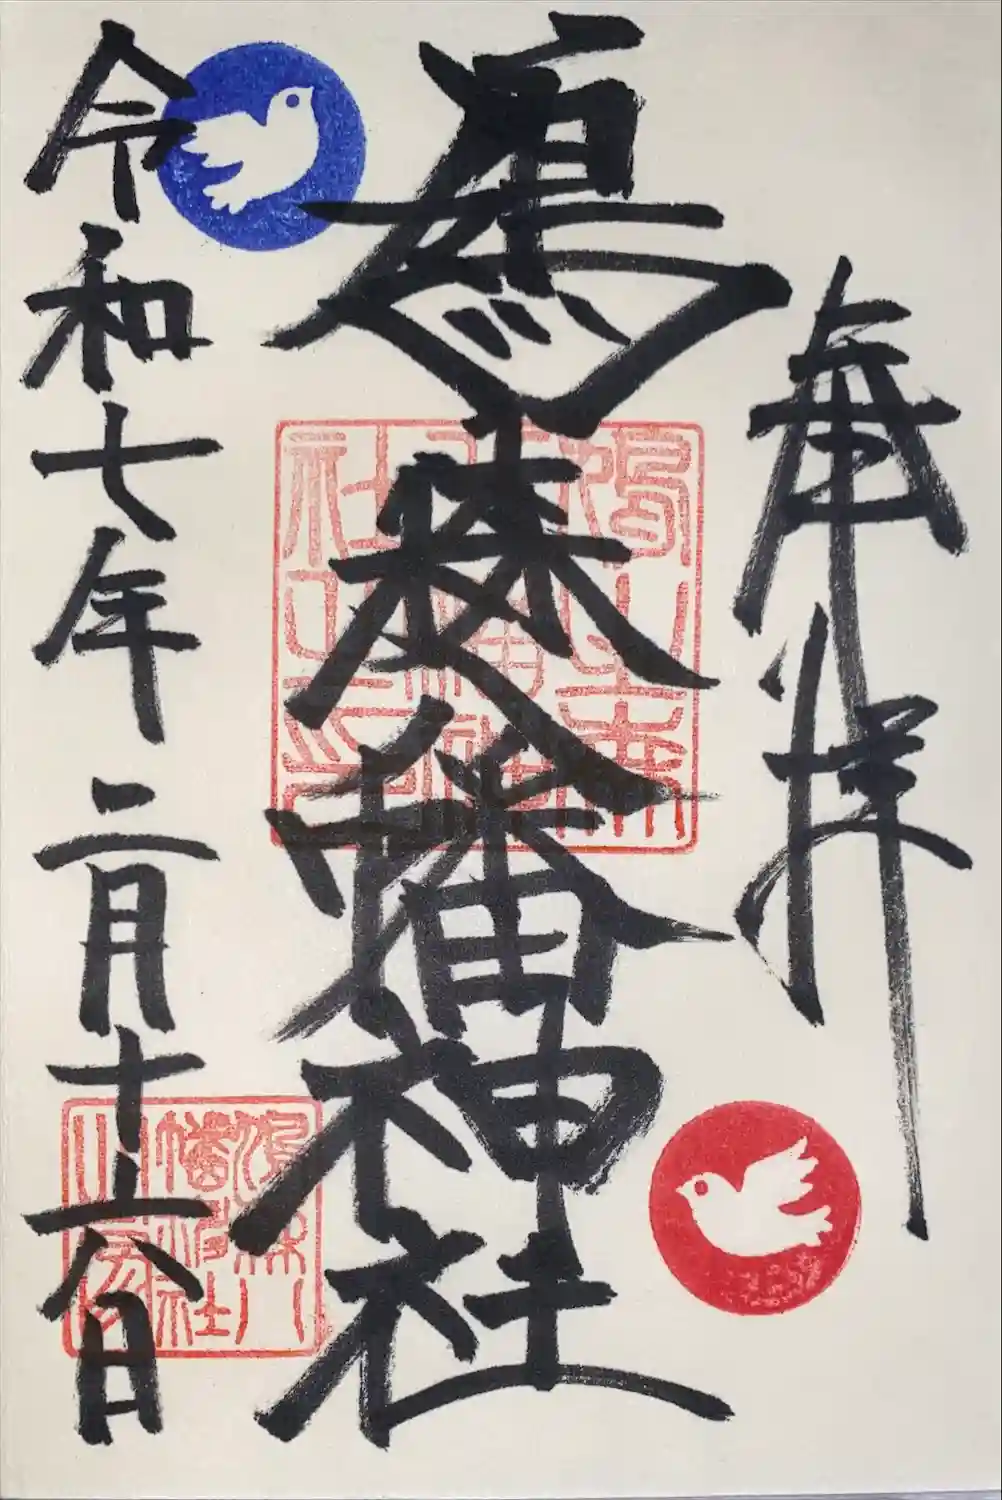 奉拝
鳩森八幡神社
令和七年二月十六日